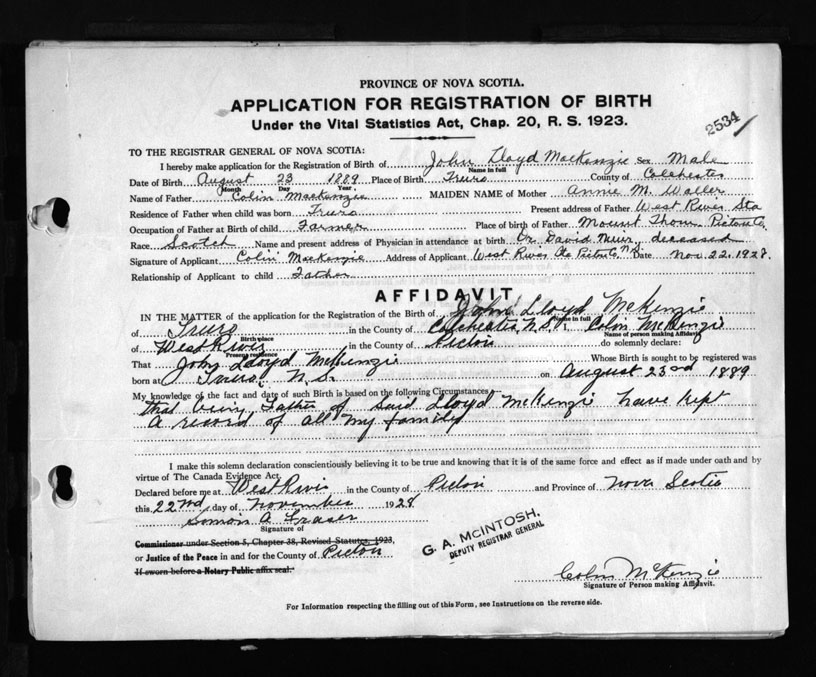 PROVINCE OF NOVA SCOTIA.
APPLICATION FOR REGISTRATION OF BIRTH
Under the Vital Statistics Act, Chap. 20, R. S. 1923.
2534
TO THE REGISTRAR GENERAL OF NOVA SCOTIA:
I hereby make application for the Registration of Birth of John Lloyd MacKenzie Sex Male
Name in full
Date of Birth August 23 1889 Place of Birth Truro County of Colchester
Month Day Year
Name of Father Colin MacKenzie MAIDEN NAME of Mother Annie M. Waller
Residence of Father when child was born Truro Present address of Father West River Sta
Occupation of Father at Birth of child Farmer Place of birth of Father Mount Thom Pictou Co.
Race Scotch Name and present address of Physician in attendance at birth Dr. David Muir, deceased
Signature of Applicant Colin MacKenzie Address of Applicant West River Sta Pictou Co. N.S. Date Nov. 22, 1928.
Relationship of Applicant to child Father
AFFIDAVIT
IN THE MATTER of the application for the Registration of the Birth of John Lloyd McKenzie
Name in full
of Truro in the County of Colchester N.S. I, Colin McKenzie
Birth place Name of person making Affidavit
of West River in the County of Pictou do solemnly declare:
Present residence
That John Lloyd McKenzie Whose Birth is sought to be registered was
born at Truro, N.S. on August 23rd 1889
My knowledge of the fact and date of such Birth is based on the following Circumstances
that being Father of said Lloyd McKenzie have kept
A record of all my family
I make this solemn declaration conscientiously believing it to be true and knowing that it is of the same force and effect as if made under oath and by
virtue of The Canada Evidence Act.
Declared before me at West River in the County of Pictou and Province of Nova Scotia
this 22nd day of November 1928
Simon A Fraser
Signature of
Commissioner under Section 5, Chapter 38, Revised Statutes, 1923,
or Justice of the Peace in and for the County of Pictou
If sworn before a Notary Public affix seal.
G. A. McINTOSH,
DEPUTY REGISTRAR GENERAL
Colin McKenzie
Signature of Person making Affidavit.
For Information respecting the filling out of this Form, see Instructions on the reverse side.